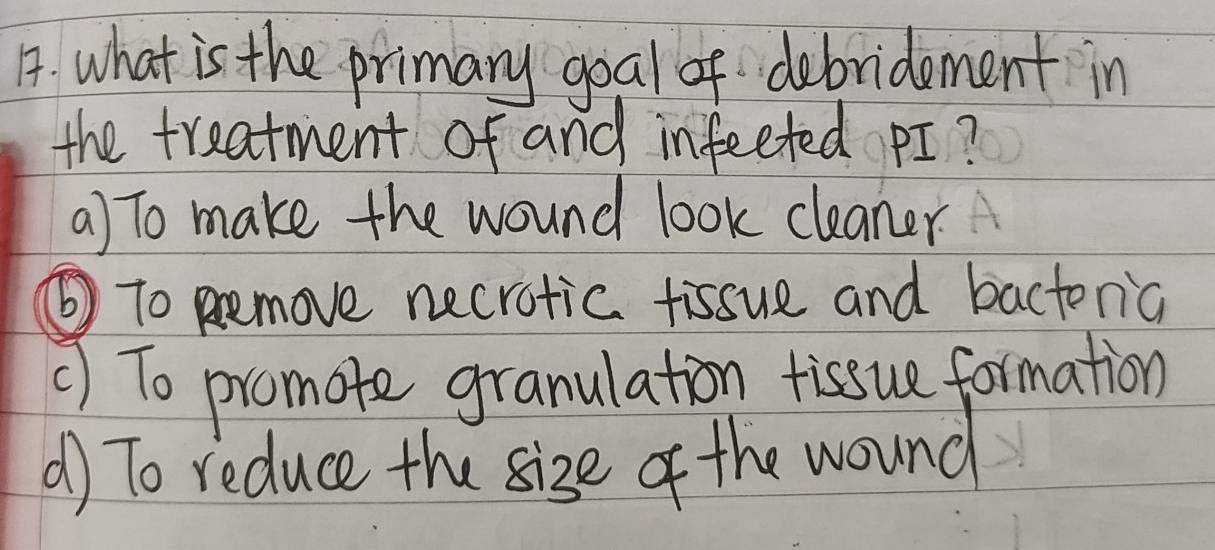 17. what is the primary goal of debridement in
the treatment of and infected PI?
a) To make the wound look cleaner.
b) To remove necrotic tissue and bacteria
c) To promote granulation tissue formation
d) To reduce the size of the wound